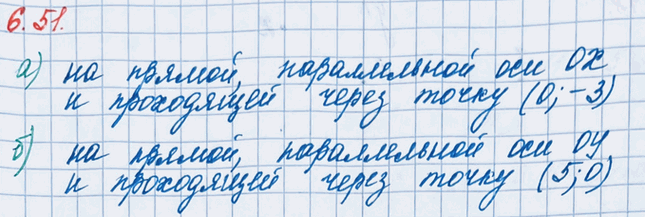 6.51.
а) на прямой, параллельной оси OX
и проходящей через точку (0; -3)
б) на прямой, параллельной оси OY
и проходящей через точку (5; 0)